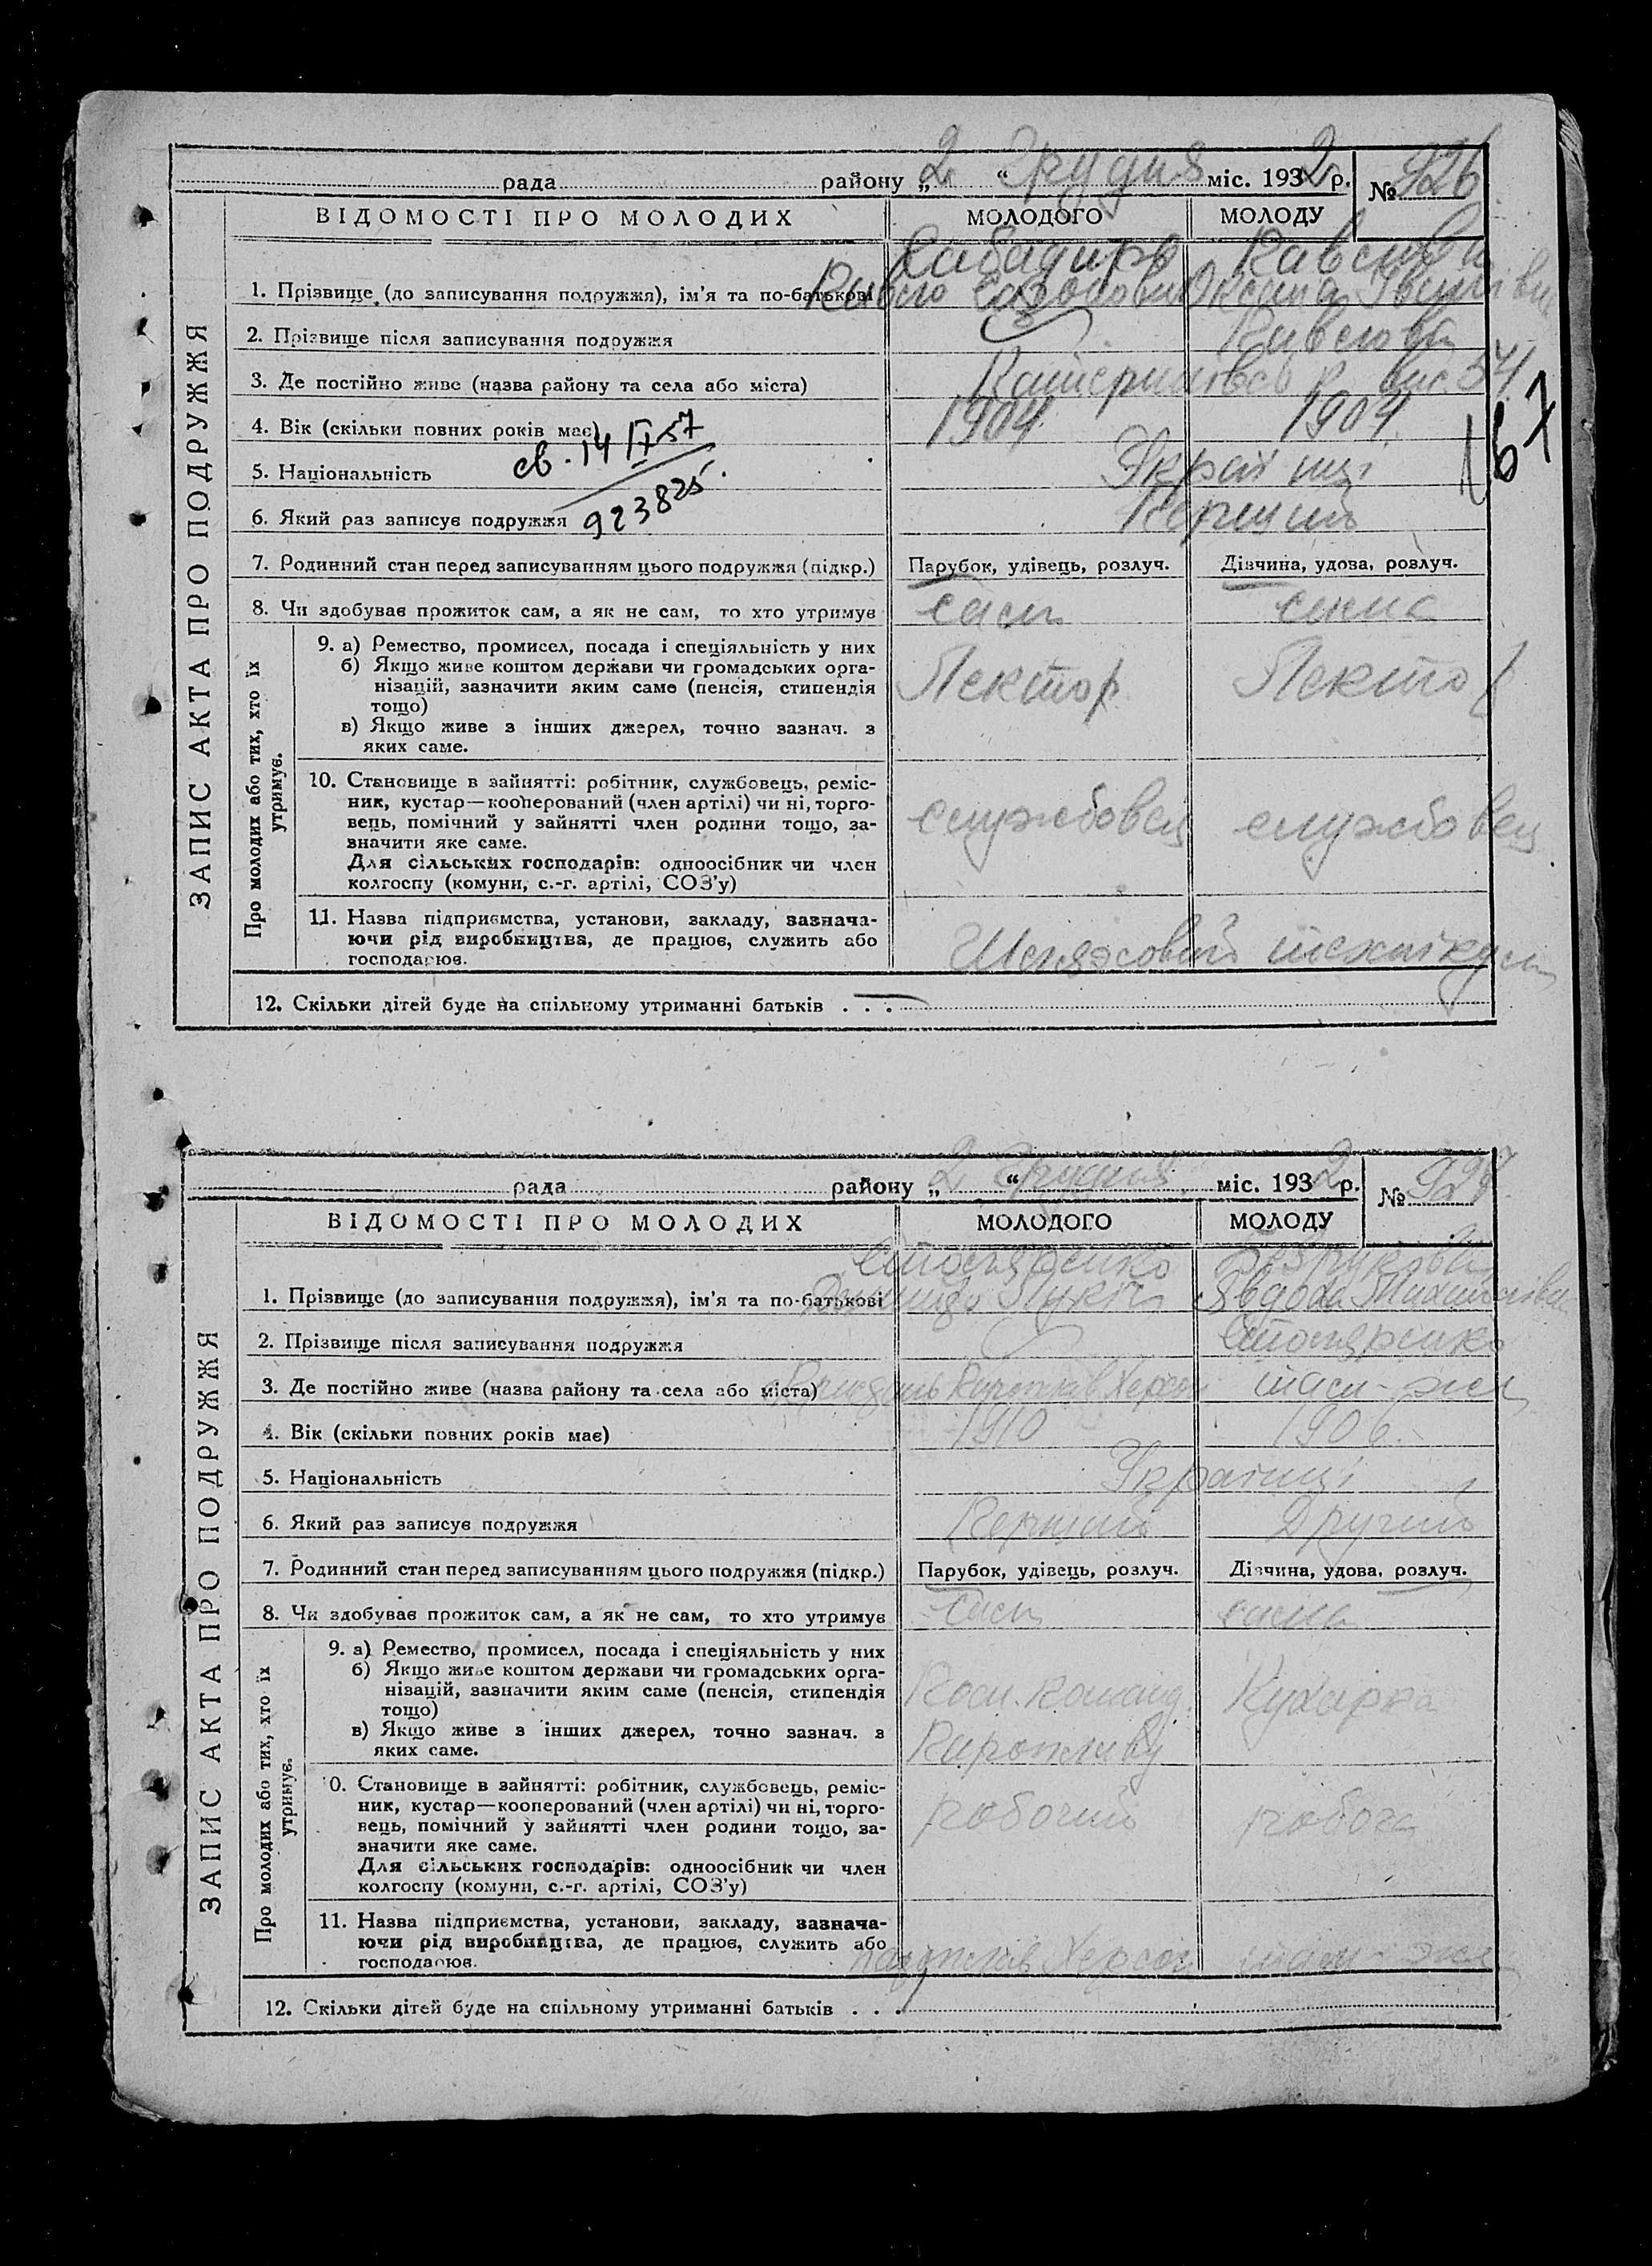 рада району „2“ Грудня міс. 1932 р. № 926
ВІДОМОСТІ ПРО МОЛОДИХ МОЛОДОГО МОЛОДУ
ЗАПИС АКТА ПРО ПОДРУЖЖЯ
1. Прізвище (до записування подружжя), ім'я та по-батькові Оксана
2. Прізвище після записування подружжя
3. Де постійно живе (назва району та села або міста) 54
4. Вік (скільки повних років має) 1904 1904
св. 14 IX 57
923825.
167
5. Національність Українці
6. Який раз записує подружжя Перший
7. Родинний стан перед записуванням цього подружжя (підкр.) Парубок, удівець, розлуч. Дівчина, удова, розлуч.
8. Чи здобував прожиток сам, а як не сам, то хто утримує сам сама
Про молодих або тих, хто їх утримує.
9. а) Ремество, промисел, посада і спеціяльність у них
б) Якщо живе коштом держави чи громадських орга-
нізацій, зазначити яким саме (пенсія, стипендія Лектор Лектор
тощо)
в) Якщо живе з інших джерел, точно зазнач. з
яких саме.
10. Становище в зайнятті: робітник, службовець, реміс-
ник, кустар—кооперований (член артілі) чи ні, торго-
вець, помічний у зайнятті член родини тощо, за- службовец службовец
значити яке саме.
Для сільських господарів: одноосібник чи член
колгоспу (комуни, с.-г. артілі, СОЗ'у)
11. Назва підприємства, установи, закладу, зазнача-
ючи рід виробництва, де працює, служить або технікум
господарює.
12. Скільки дітей буде на спільному утриманні батьків . . . —
рада району „2“ Грудня міс. 1932 р. № 927
ВІДОМОСТІ ПРО МОЛОДИХ МОЛОДОГО МОЛОДУ
ЗАПИС АКТА ПРО ПОДРУЖЖЯ
Столяренко
1. Прізвище (до записування подружжя), ім'я та по-батькові Явдоха
2. Прізвище після записування подружжя Столяренко
3. Де постійно живе (назва району та села або міста) Херсон
4. Вік (скільки повних років має) 1910 1906
5. Національність Українці
6. Який раз записує подружжя Перший Другий
7. Родинний стан перед записуванням цього подружжя (підкр.) Парубок, удівець, розлуч. Дівчина, удова, розлуч.
8. Чи здобував прожиток сам, а як не сам, то хто утримує сам сама
Про молодих або тих, хто їх утримує.
9. а) Ремество, промисел, посада і спеціяльність у них
б) Якщо живе коштом держави чи громадських орга-
нізацій, зазначити яким саме (пенсія, стипендія Кухарка
тощо)
в) Якщо живе з інших джерел, точно зазнач. з
яких саме.
10. Становище в зайнятті: робітник, службовець, реміс-
ник, кустар—кооперований (член артілі) чи ні, торго- робочий робоча
вець, помічний у зайнятті член родини тощо, за-
значити яке саме.
Для сільських господарів: одноосібник чи член
колгоспу (комуни, с.-г. артілі, СОЗ'у)
11. Назва підприємства, установи, закладу, зазнача-
ючи рід виробництва, де працює, служить або
господарює. Херсон
12. Скільки дітей буде на спільному утриманні батьків . . .